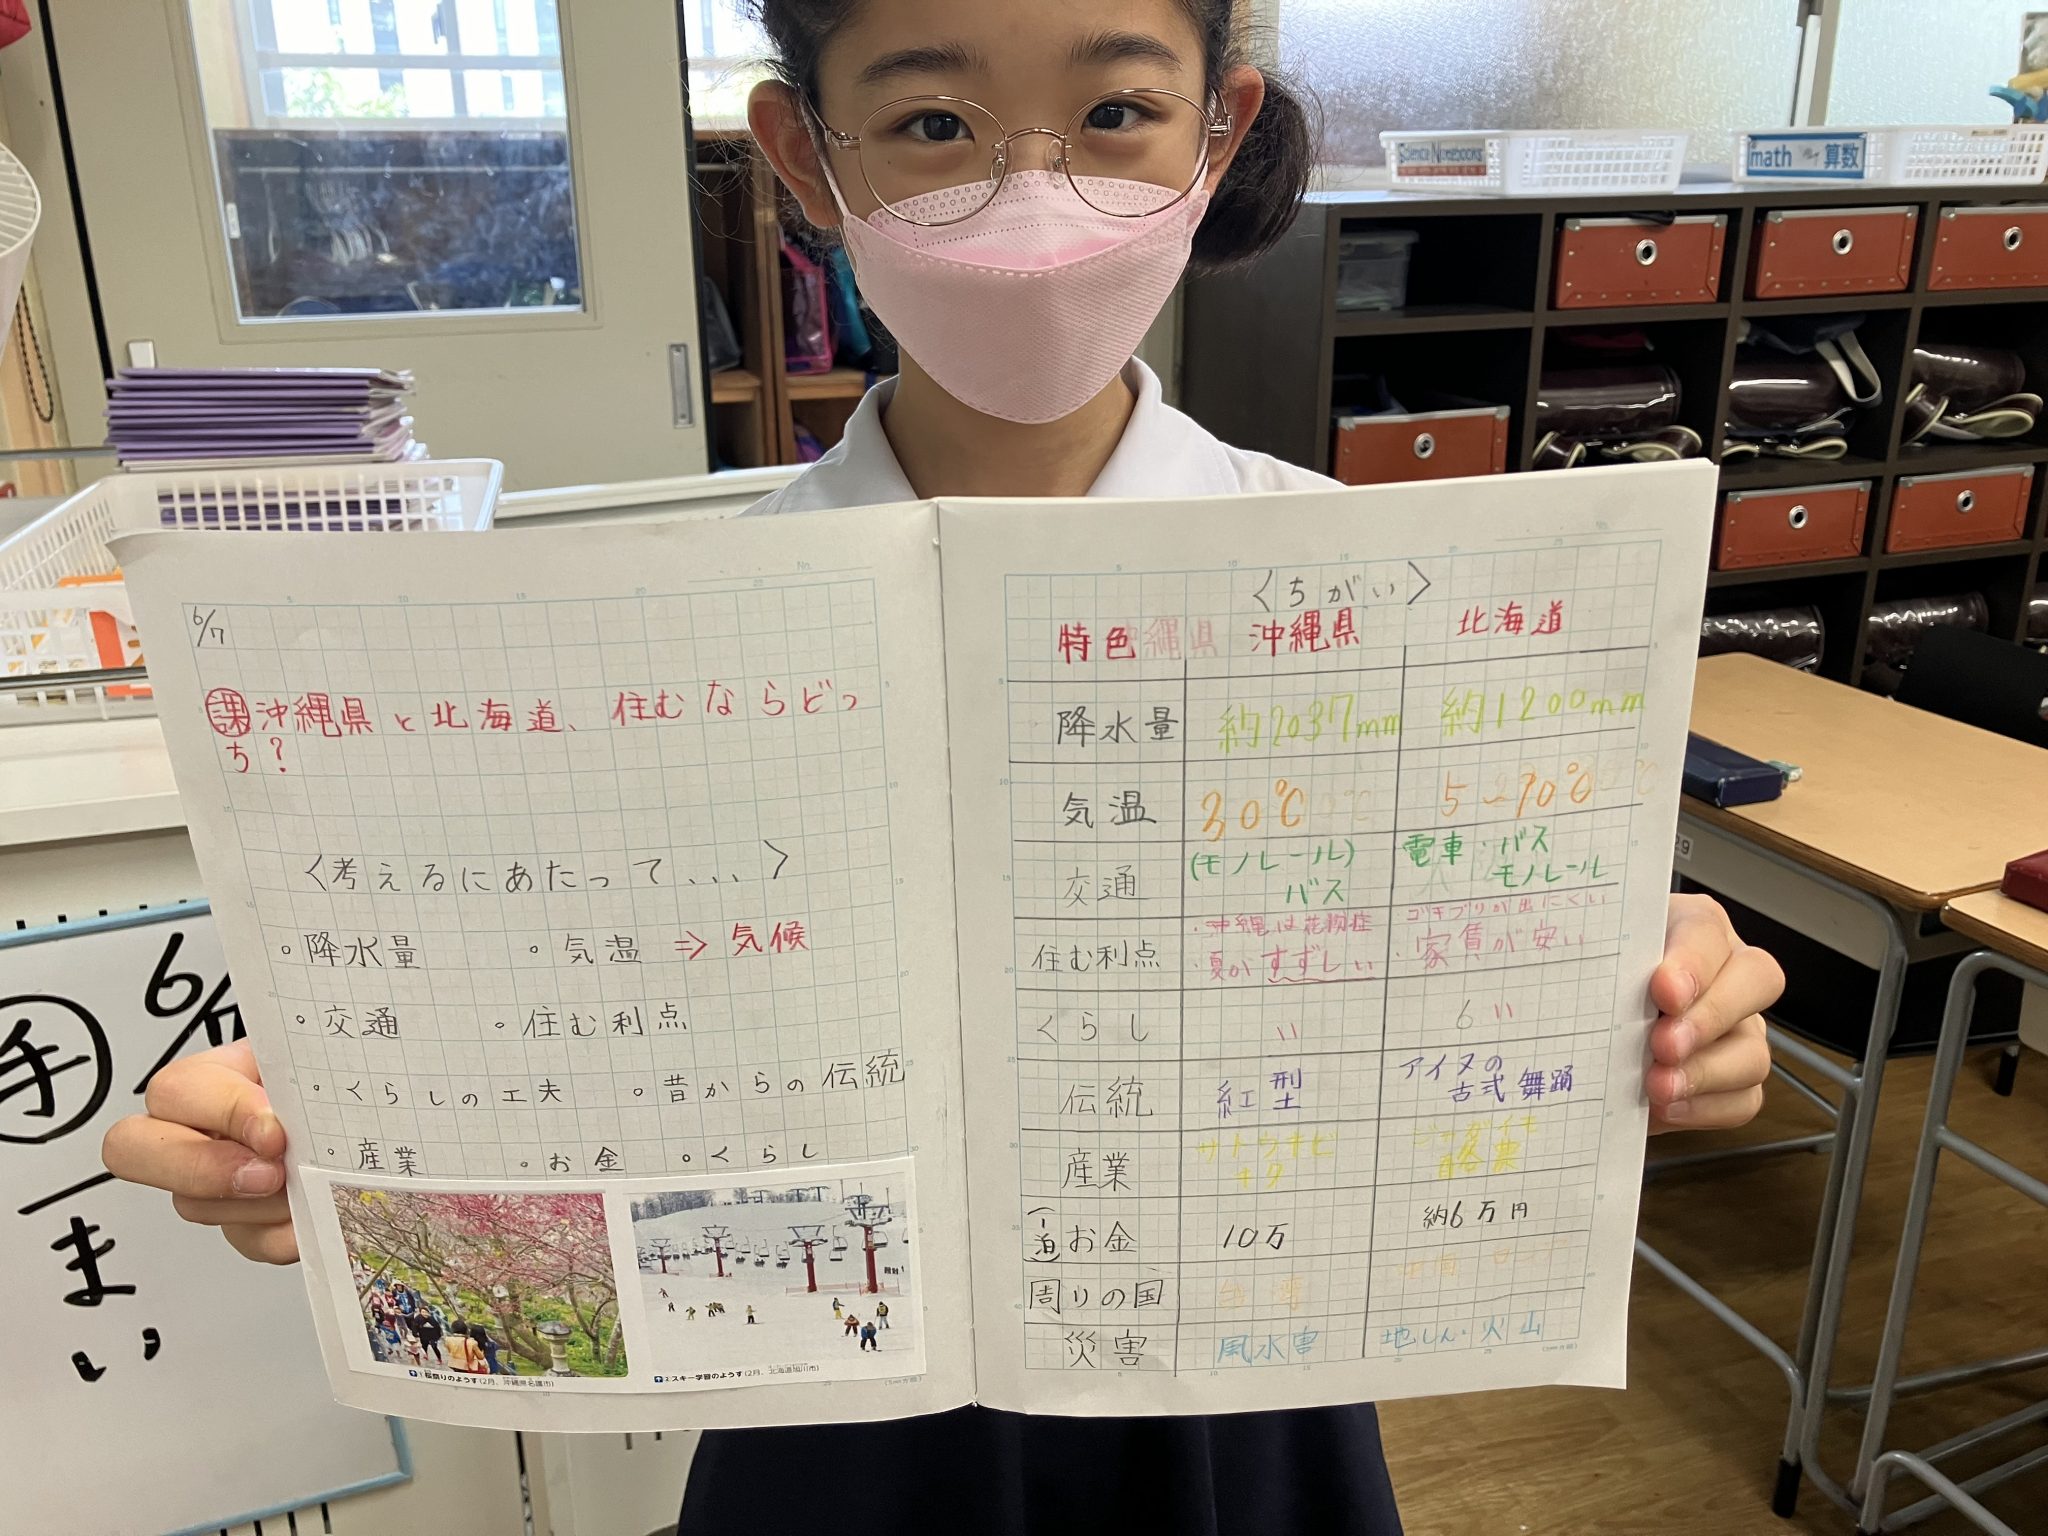 Science Notebooks
math 算数
29
6/7
課 沖縄県と北海道、住むならどっ
ち?
〈考えるにあたって...〉
・降水量 ・気温 ⇒ 気候
・交通 ・住む利点
・くらしの工夫 ・昔からの伝統
・産業 ・お金 ・くらし
1 桜祭りのようす(2月、沖縄県名護市)
2 スキー学習のようす(2月、北海道旭川市)
〈ちがい〉
特色 沖縄県 北海道
降水量 約2037mm 約1200mm
気温 30℃ 5~10℃
交通 (モノレール) バス 電車・バス モノレール
住む利点 ・沖縄は花粉症 ・夏がすずしい ゴキブリが出にくい ・家賃が安い
くらし い 6い
伝統 紅型 アイヌの古式舞踊
産業 サトウキビ キク ジャガイモ 酪農
(一泊) お金 10万 約6万円
周りの国 台湾
災害 風水害 地しん・火山
6/
手
まい